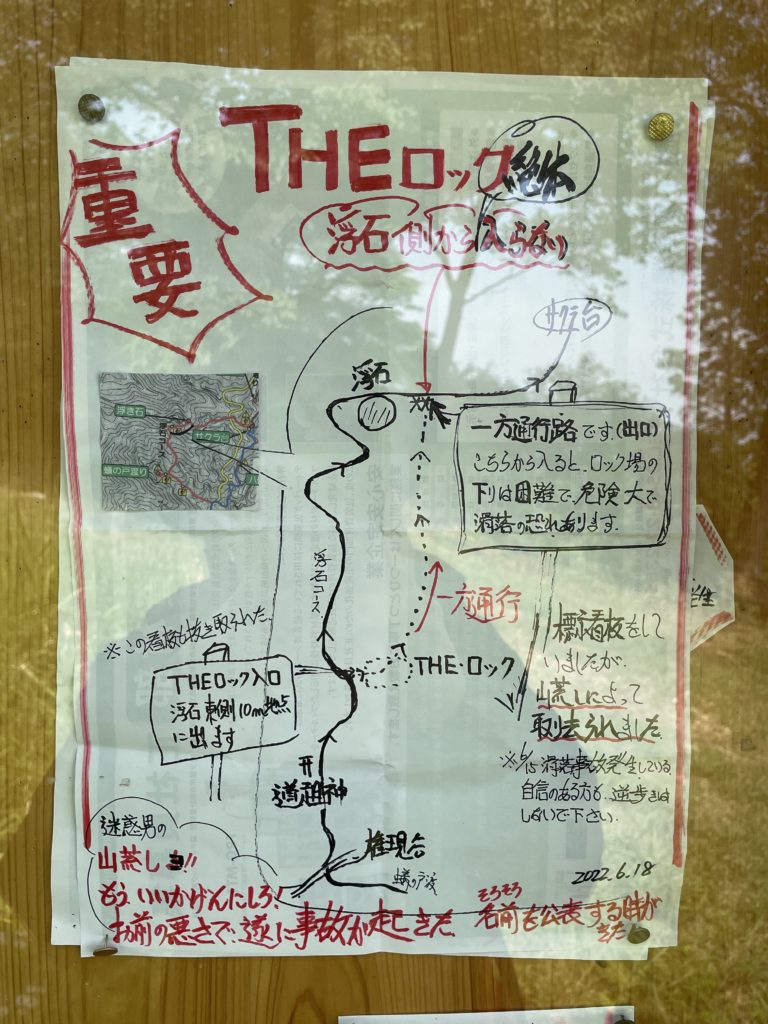 重
要
THEロック
絶体
浮石側から入らない
サクラ台
浮石
浮き石
サクラ台
蟻の戸渡り
一方通行路です.(出口)
こちらから入ると、ロック場の
下りは困難で、危険大で
滑落の恐れあります.
浮石コース
一方通行
※この看板も抜き取られた.
THE・ロック
THEロック入口
浮石東側10m地点
に出ます
標示看板をして
いましたが.
山荒しによって
取り去られました
※6/15 滑落事故発生している
自信のある方も、逆歩きは
しないで下さい.
道祖神
権現台
蟻の戸渡
2022.6.18
迷惑男の
山荒し!!
もう、いいかげんにしろ!
お前の悪さで.遂に事故が起きた.
そろそろ
名前も公表する時が
きた